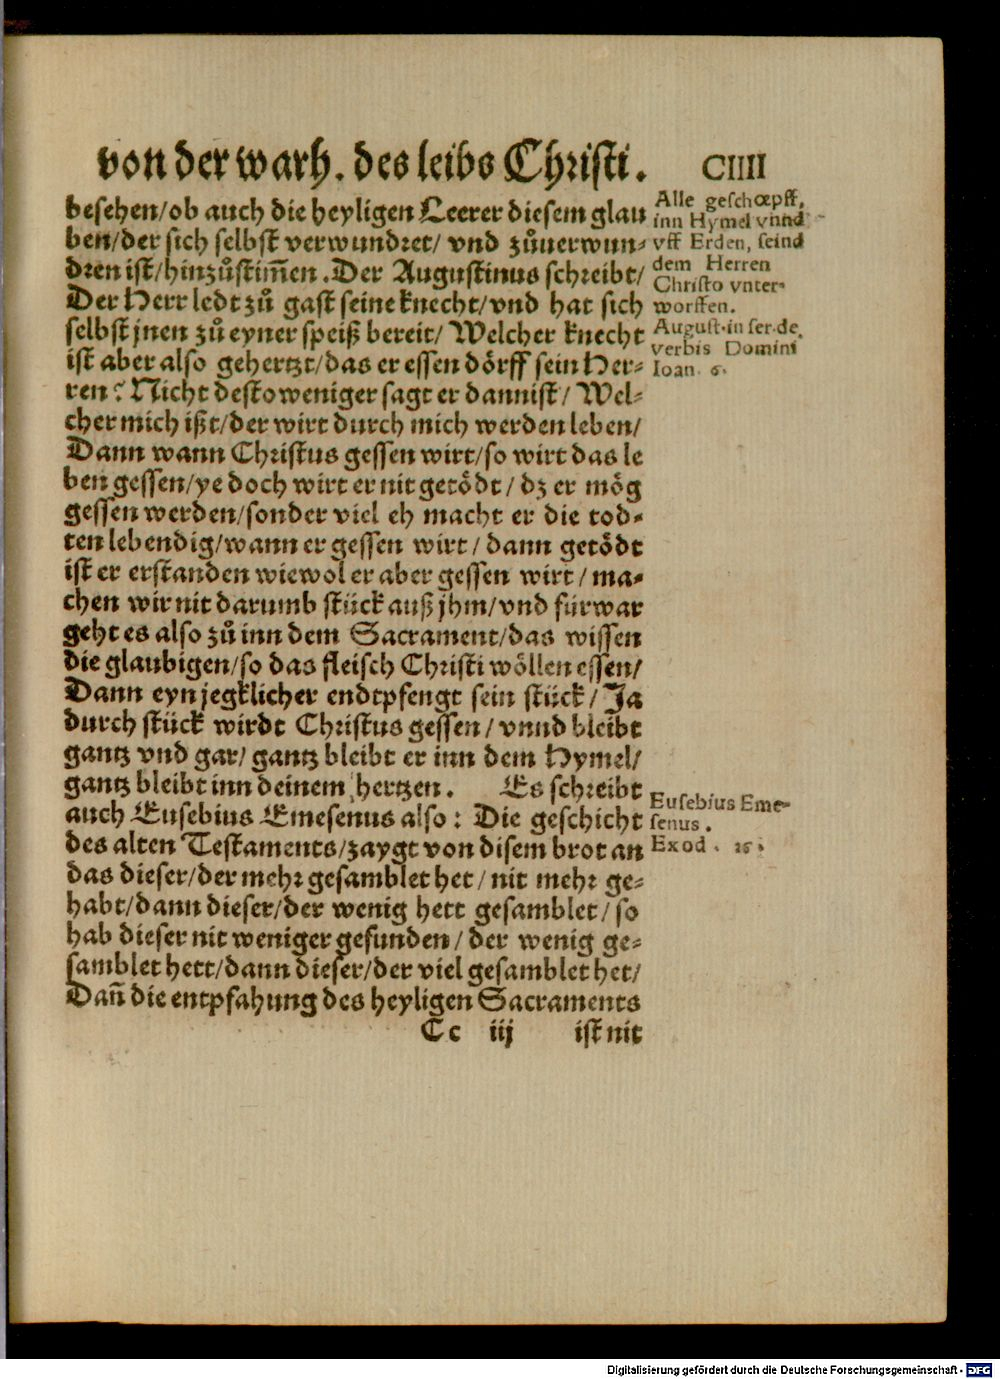 von der warh. des leibs Christi. CIIII
besehen/ob auch die heyligen Leerer diesem glau
ben/der sich selbst verwundret/ vnd zůuerwun-
dren ist/hinzůstim̃en. Der Augustinus schreibt/
Der Herr ledt zů gast seine knecht/vnd hat sich
selbst jnen zů eyner speiß bereit/ Welcher knecht
ist aber also gehertzt/das er essen dörff sein Her-
ren? Nicht destoweniger sagt er dannist/ Wel-
cher mich ißt/der wirt durch mich werden leben/
Dann wann Christus gessen wirt/so wirt das le
ben gessen/ye doch wirt er nit getödt/ dz er mög
gessen werden/sonder viel eh macht er die tod-
ten lebendig/wann er gessen wirt/ dann getödt
ist er erstanden wiewol er aber gessen wirt/ ma-
chen wir nit darumb stück auß jhm/vnd fürwar
geht es also zů inn dem Sacrament/das wissen
die glaubigen/so das fleisch Christi wöllen essen/
Dann eyn jegklicher endtpfengt sein stück/ Ja
durch stück wirdt Christus gessen/ vnnd bleibt
gantz vnd gar/ gantz bleibt er inn dem Hymel/
gantz bleibt inn deinem hertzen. Es schreibt
auch Eusebius Emesenus also: Die geschicht
des alten Testaments/zaygt von disem brot an
das dieser/der mehr gesamblet het/ nit mehr ge-
habt/dann dieser/der wenig hett gesamblet/ so
hab dieser nit weniger gefunden/ der wenig ge-
samblet hett/dann dieser/der viel gesamblet het/
Dañ die entpfahung des heyligen Sacraments
Cc iij ist nit
Alle geschœpff,
inn Hymel vnnd
vff Erden, seind
dem Herren
Christo vnter-
worffen.
August. in ser. de
verbis Domini
Ioan. 6.
Eusebius Eme-
senus.
Exod. 16.
Digitalisierung gefördert durch die Deutsche Forschungsgemeinschaft - DFG